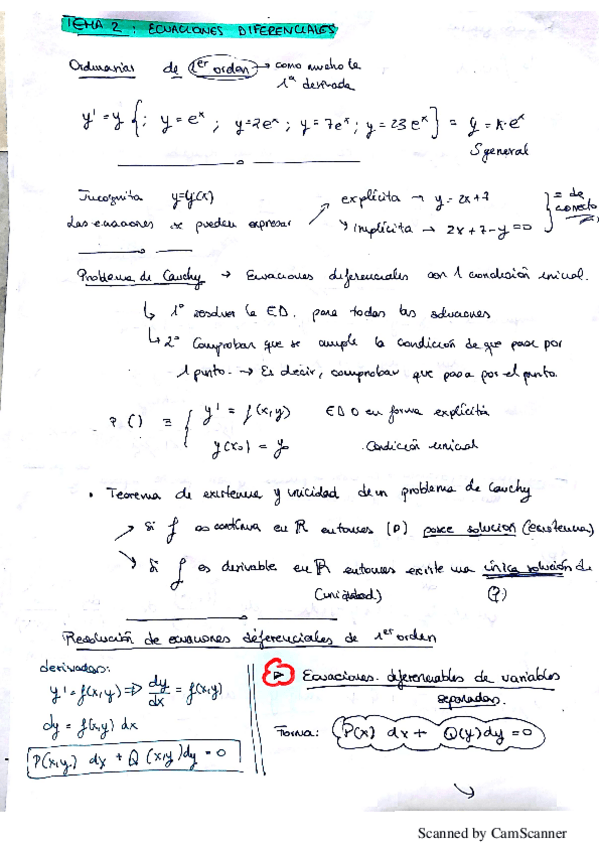 TEMA 2: ECUACIONES DIFERENCIALES
Ordinarias de 1er orden → como mucho la
1ª derivada
y' = y {; y = e^x ; y=2e^x ; y=7e^x ; y=23e^x} = y = k·e^x
S general
Incognita y=y(x)
Las ecuaciones se pueden expresar
explícita → y = 2x+7
implícita → 2x+7-y=0
= de
correcto
Problema de Cauchy → Ecuaciones diferenciales con 1 condición inicial.
↳ 1º resolver la ED. para todas las soluciones
↳ 2º Comprobar que se cumple la condición de que pase por
1 punto. → Es decir, comprobar que pasa por el punto.
P () ≡ { y' = f(x,y) EDO en forma explícita
y(x0) = y0 Condición inicial
• Teorema de existencia y unicidad de un problema de Cauchy
→ Si f es continua en ℝ entonces (P) posee solución (existencia)
→ Si f es derivable en ℝ entonces existe una única solución de
(unicidad) (P)
Resolución de ecuaciones diferenciales de 1er orden
derivadas:
y' = f(x,y) ⇒ dy/dx = f(x,y)
dy = f(x,y) dx
P(x,y) dx + Q(x,y)dy = 0
▷ Ecuaciones diferenciables de variables
separadas.
Forma: P(x) dx + Q(y)dy = 0
↘
Scanned by CamScanner